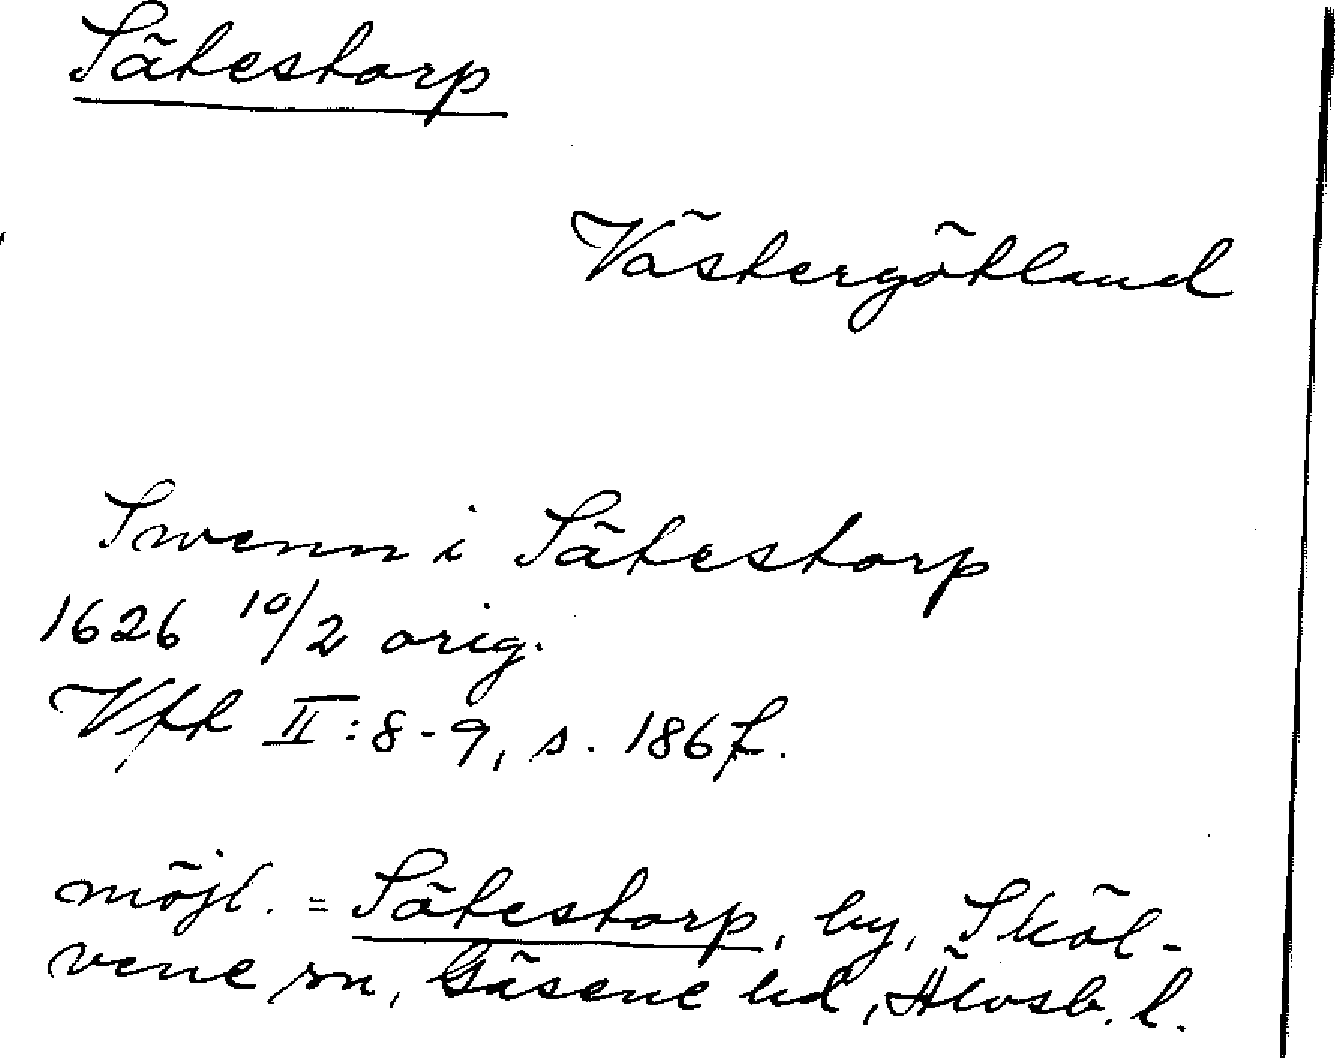 Sätestorp
Västergötland
Swenn i Sätestorp
1626 10/2 orig.
Vfk II:8-9, s. 186f.
möjl. = Sätestorp, by, Sköl-
vene sn, Gäsene hd, Älvsb. l.